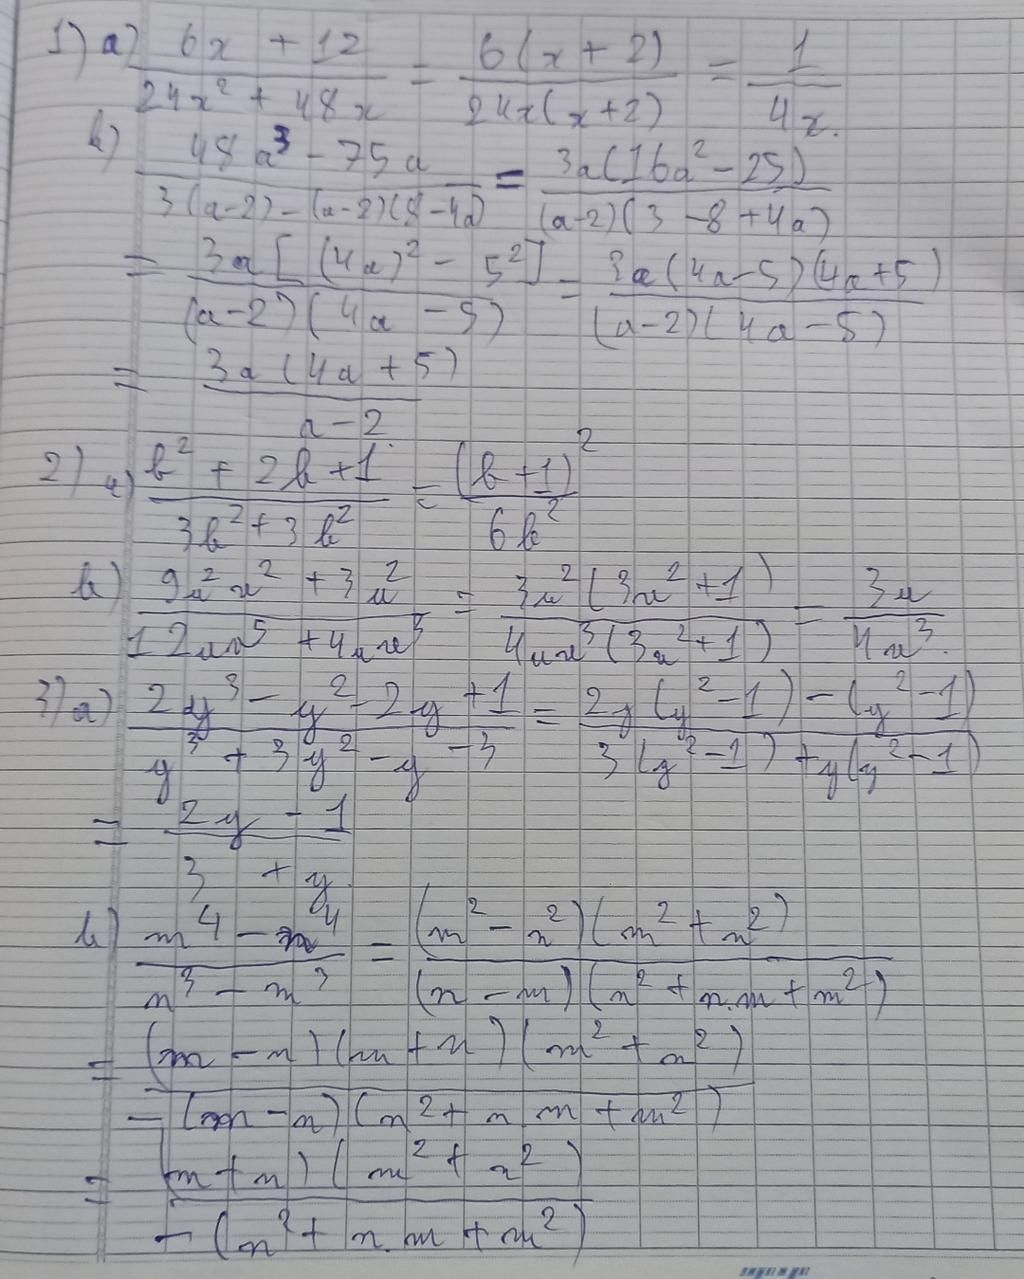 1) a) (6x + 12)/(24x² + 48x) = 6(x + 2)/(24x(x+2)) = 1/(4x.)
b) (48a³ - 75a)/(3(a-2) - (a-2)(8-4a)) = 3a(16a² - 25)/((a-2)(3 - 8 + 4a))
= 3a[(4a)² - 5²]/((a-2)(4a - 5)) = 3a(4a-5)(4a+5)/((a-2)(4a-5))
= 3a(4a + 5)/(a-2)
2) a) (b² + 2b + 1)/(3b² + 3b²) = (b+1)²/(6b²)
b) (9u²x² + 3u²)/(12ux⁵ + 4ux³) = 3u²(3x² + 1)/(4ux³(3x² + 1)) = 3u/(4x³.)
3) a) (2y³ - y² - 2y + 1)/(y³ + 3y² - y - 3) = (2y(y² - 1) - (y² - 1))/(3(y² - 1) + y(y² - 1))
= (2y - 1)/(3 + y)
b) (m⁴ - n⁴)/(n³ - m³) = (m² - n²)(m² + n²)/((n - m)(n² + n.m + m²))
= (m - n)(m + n)(m² + n²)/(-(m - n)(n² + n m + m²))
= (m + n)(m² + n²)/(-(n² + n.m + m²))